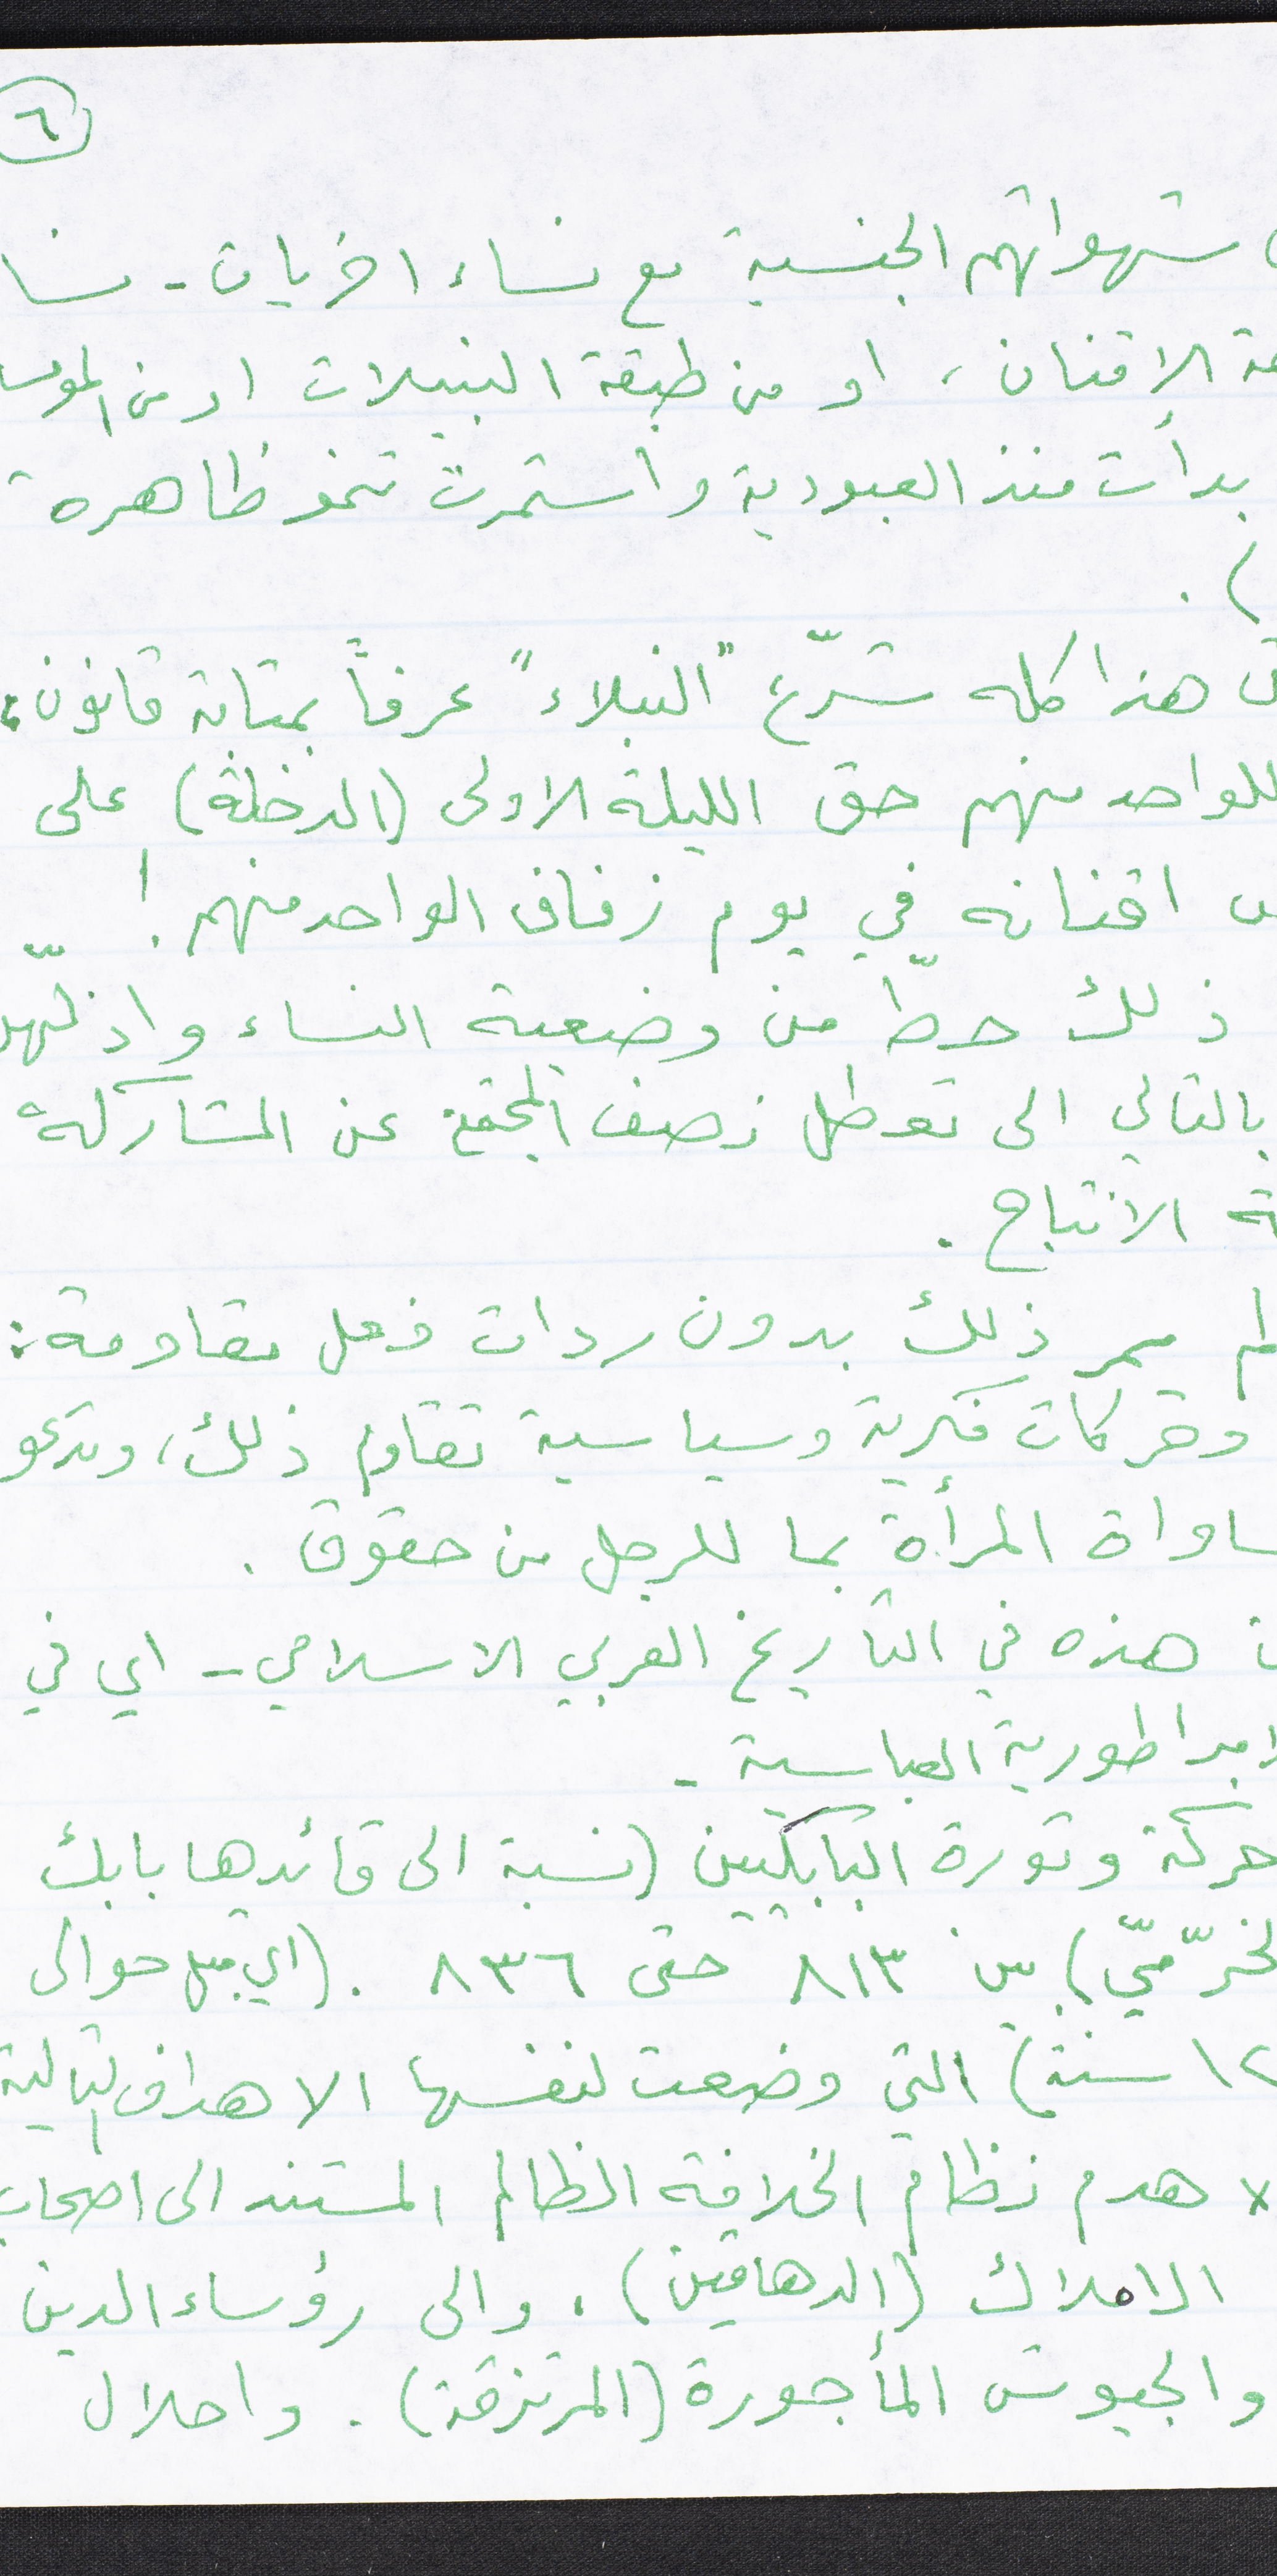 ٦
شهواتهم الجنسية مع نساء اخريات - نسا
الاقنان، او من طبقة النبيلات او من الموسا
بدأت منذ العبودية واستمرت تنمو ظاهرة
).
هذا كله شرّع "النبلاء" عرفاً بمثابة قانون:
للواحد منهم حق الليلة الاولى (الدخلة) على
اقنانه في يوم زفاف الواحد منهم!
ذلك حطّ من وضعية النساء واذلّهن
بالتالي الى تعطل نصف المجتمع عن المشاركة
ة الانتاج.
لم يمر ذلك بدون ردات فعل مقاومة:
وحركات فكرية وسياسية تقاوم ذلك، وتدعو
ساواة المرأة بما للرجل من حقوق.
هذه في التاريخ العربي الاسلامي - اي في
لامبراطورية العباسية -
حركة وثورة البابكيين (نسبة الى قائدها بابك
لخرّميّ) بين ٨١٣ حتى ٨٣٦. (اي قبل حوالى
١٢ سنة) التي وضعت لنفسها الاهداف التالية
x هدم نظام الخلافة الظالم المستند الى اصحاب
الاملاك (الدهاقين)، والى رؤساء الدين
والجيوش المأجورة (المرتزقة). واحلال